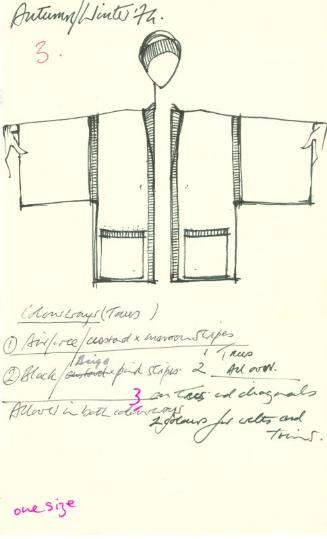 Autumn/Winter '74.
3.
Colourways (Trees)
① Airforce/custard x maroon stripes
1 Trees
② Black/Beige x pink stripes. 2 Allover.
3 on Trees and diagonals
Allover in both colourways
2 colours for welts and
trims.
one size